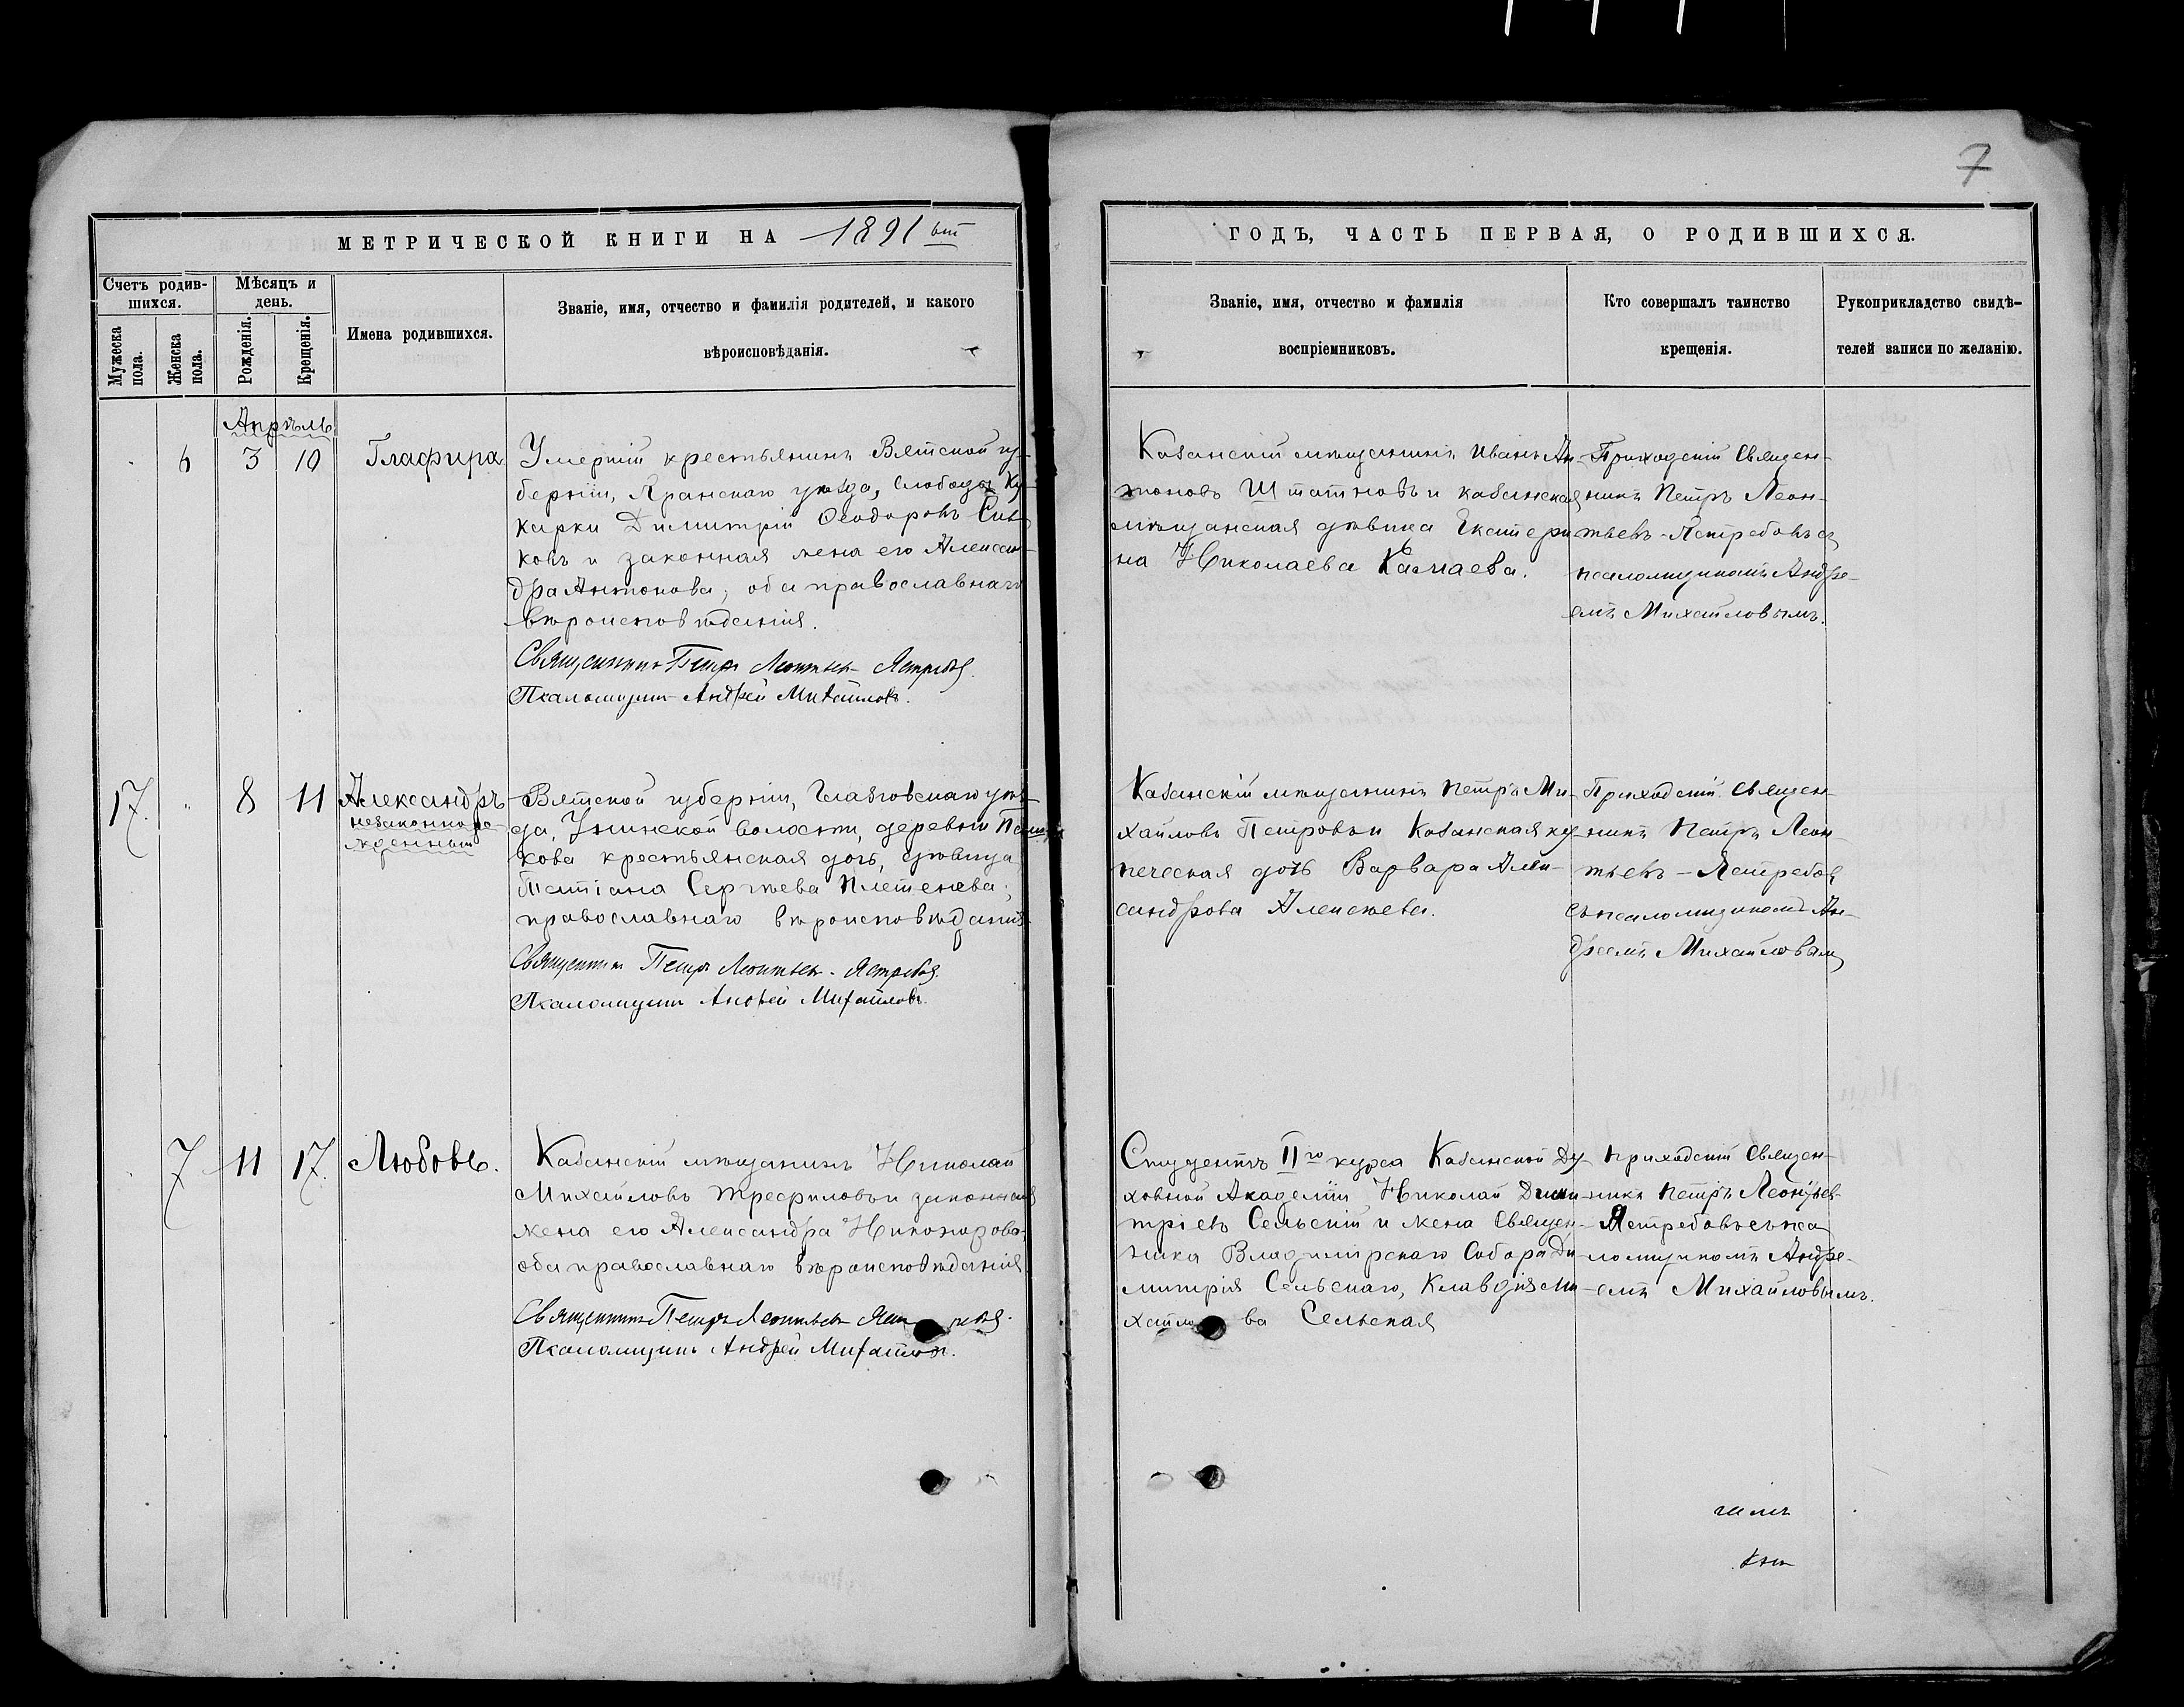 7
МЕТРИЧЕСКОЙ КНИГИ НА 1891 ый
ГОДЪ, ЧАСТЬ ПЕРВАЯ, О РОДИВШИХСЯ.
Счетъ родив-
шихся.
Мужеска
пола.
Женска
пола.
Мѣсяцъ и
день.
Рожденія.
Крещенія.
Имена родившихся.
Званіе, имя, отчество и фамилія родителей, и какого
вѣроисповѣданія.
Званіе, имя, отчество и фамилія
воспріемниковъ.
Кто совершалъ таинство
крещенія.
Рукоприкладство свидѣ-
телей записи по желанію.
Апрѣль
6 3 10
Глафира
Умершій крестьянинъ Вятской гу-
берніи, Яранскаго уѣзда, слободы Ку-
карки Димитрій Ѳеодоровъ
и законная жена его Алексан-
дра Антонова, оба православнаго
вѣроисповѣданія.
Священникъ Петръ Леонтьев-Ястребов.
Псаломщикъ Андрей Михайловъ.
Казанскій мѣщанинъ Иванъ Ан-
тоновъ Штатновъ и казанская
мѣщанская дѣвица Екатери
на Николаева Камаева.
Приходскій Священ-
никъ Петръ Леон-
тьевъ-Ястребовъ съ
псаломщикомъ Андре-
емъ Михайловымъ.
17. " 8 11
Александръ
незаконноро-
жденный
Вятской губерніи, Глазовскаго уѣз-
да, Унинской волости, деревни
кова крестьянская дочь, дѣвица
Татіана Сергѣева Плетенева,
православнаго вѣроисповѣданія.
Священник Петръ Леонтьев-Ястребов.
Псаломщикъ Андрей Михайловъ.
Казанскій мѣщанинъ Петръ Ми-
хайловъ Петровъ и Казанская ку-
печеская дочь Варвара Алек-
сандрова Алексѣева.
Приходскій Священ-
никъ Петръ Леон-
тьевъ-Ястребов
съ псаломщикомъ Ан-
дреемъ Михайловым
7 11 17.
Любовь.
Казанскій мѣщанинъ Николай
Михайловъ Трефиловъ и законная
жена его Александра Никонорова,
оба православнаго вѣроисповѣданія
Священникъ Петръ Леонтьев
Псаломщикъ Андрей Михайлов.
Студентъ IIго курса Казанской Ду-
ховной Академіи Николай Дими
тріевъ Сельскій и жена Священ-
ника Владимірскаго Собора Ди-
митрія Сельскаго, Клавдія Ми
хайлова Сельская
Приходскій Священ-
никъ Петръ Леонтьев-
Ястребовъ съ пса
ломщикомъ Андре-
емъ Михайловымъ.